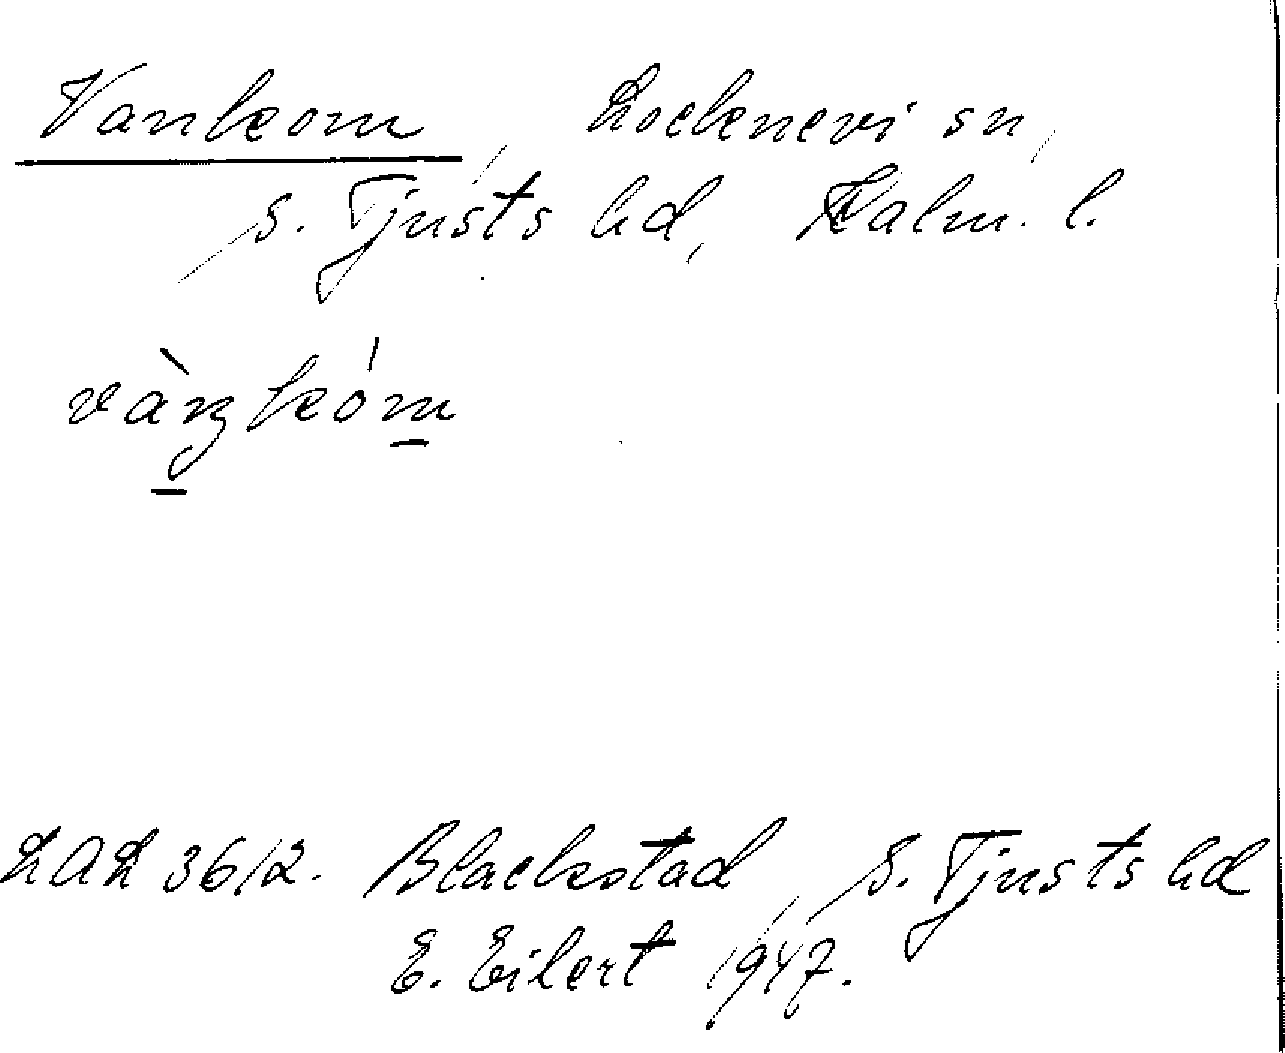 Vankom, Locknevi sn,
S. Tjusts hd, Kalm. l.
vàŋkóm
LAL 36/2. Blackstad, S. Tjusts hd
E. Eilert 1947.